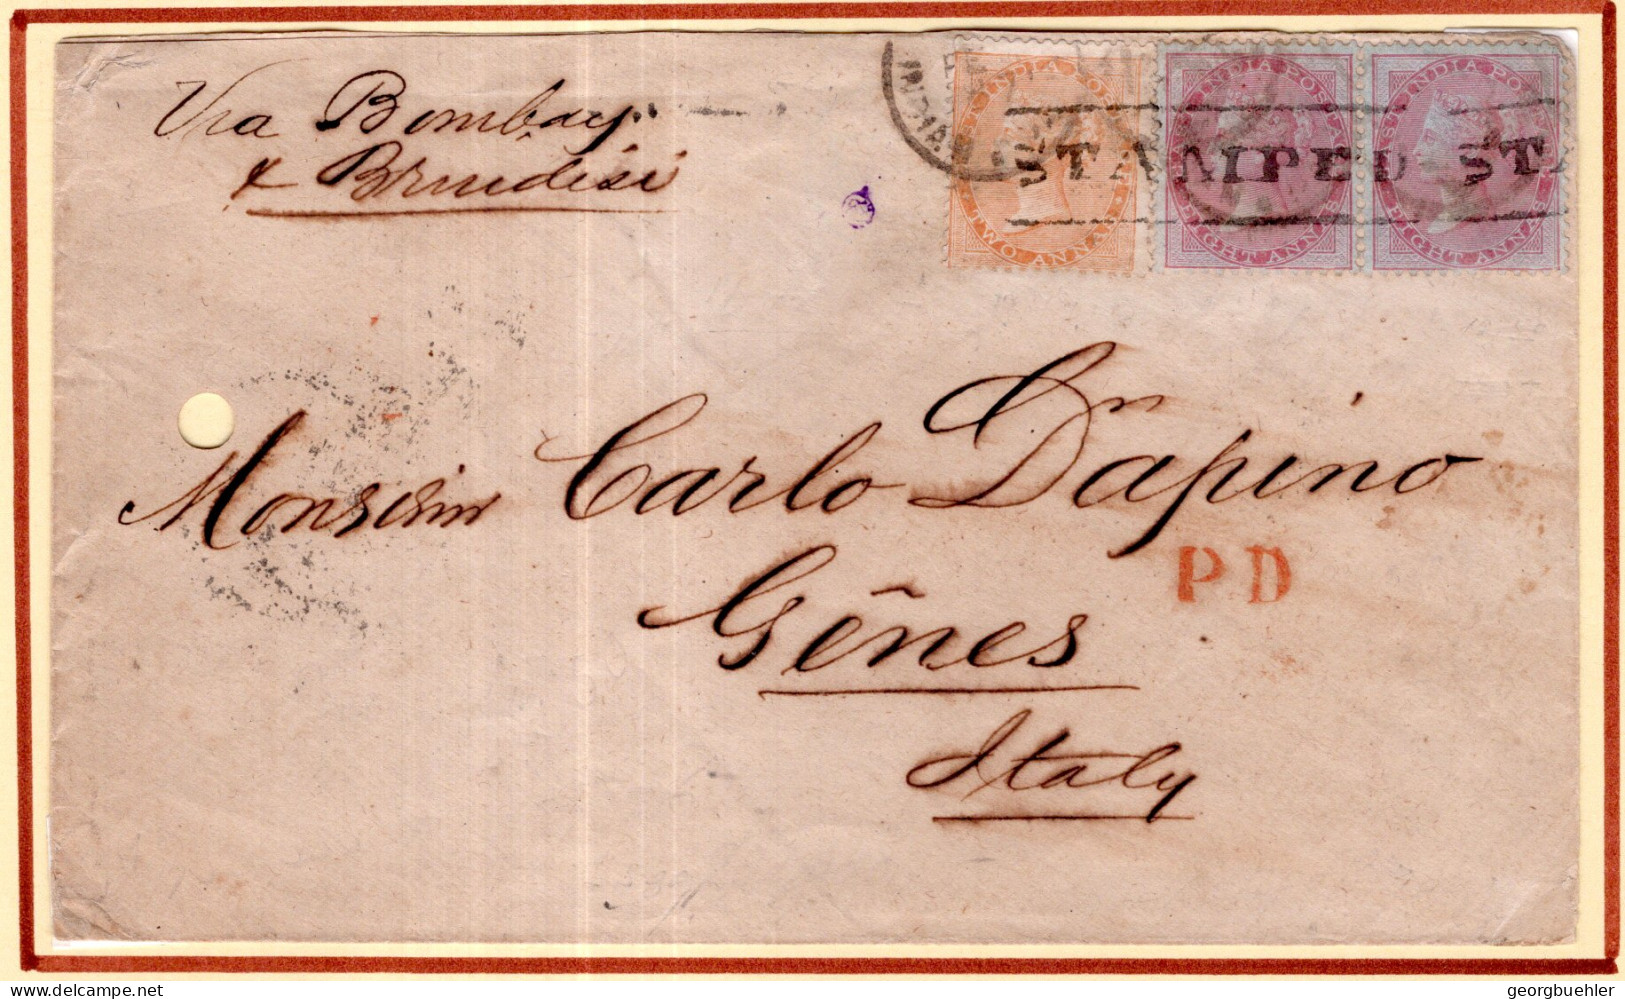 Via Bombay
& Brindisi
INDIA POS
TWO ANNAS
INDIA POSTA
EIGHT ANNAS
INDIA POS
EIGHT ANNAS
INDIAN
STAMPED STA
Monsieur Carlo Dapino
Gênes
Italy
PD
delcampe.net
georgbuehler